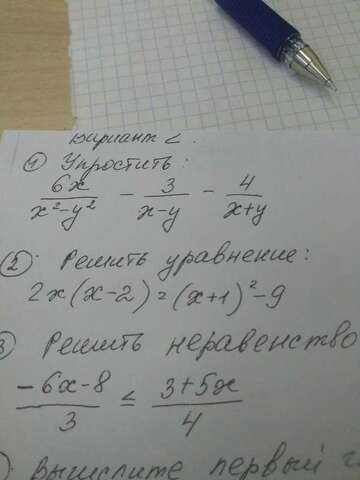 Вариант 2.
1 Упростить:
6x/(x²-y²) - 3/(x-y) - 4/(x+y)
2 Решить уравнение:
2x(x-2)=(x+1)²-9
3 Решить неравенство
(-6x-8)/3 ≤ (3+5x)/4
вычислите первый